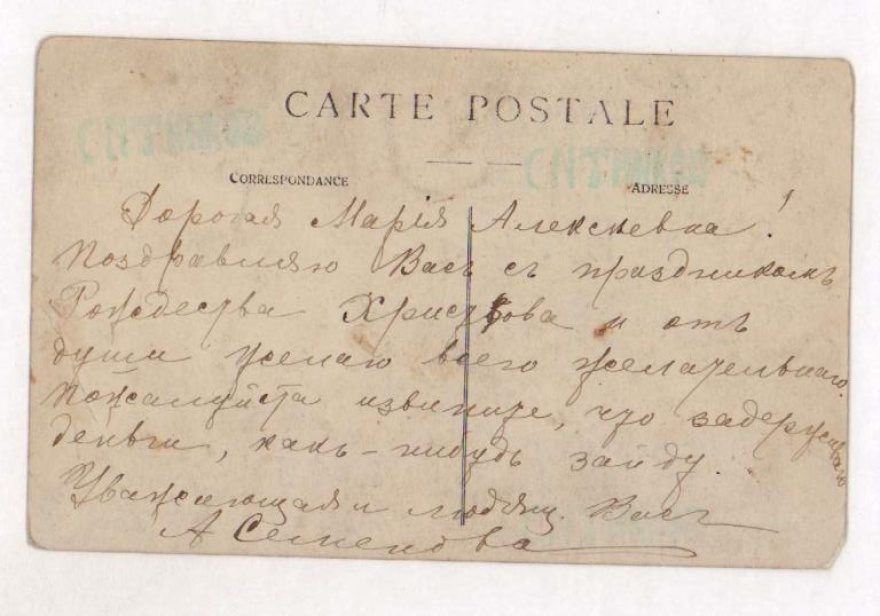 CARTE POSTALE
CORRESPONDANCE
ADRESSE
Дорогая Марія Алексѣевна!
Поздравляю Васъ съ праздникомъ
Рождества Христова и отъ
души желаю всего желательнаго.
Пожалуйста извините, что задерживаю
деньги, какъ-нибудь зайду.
Уважающая и любящ. Васъ
А Семенова